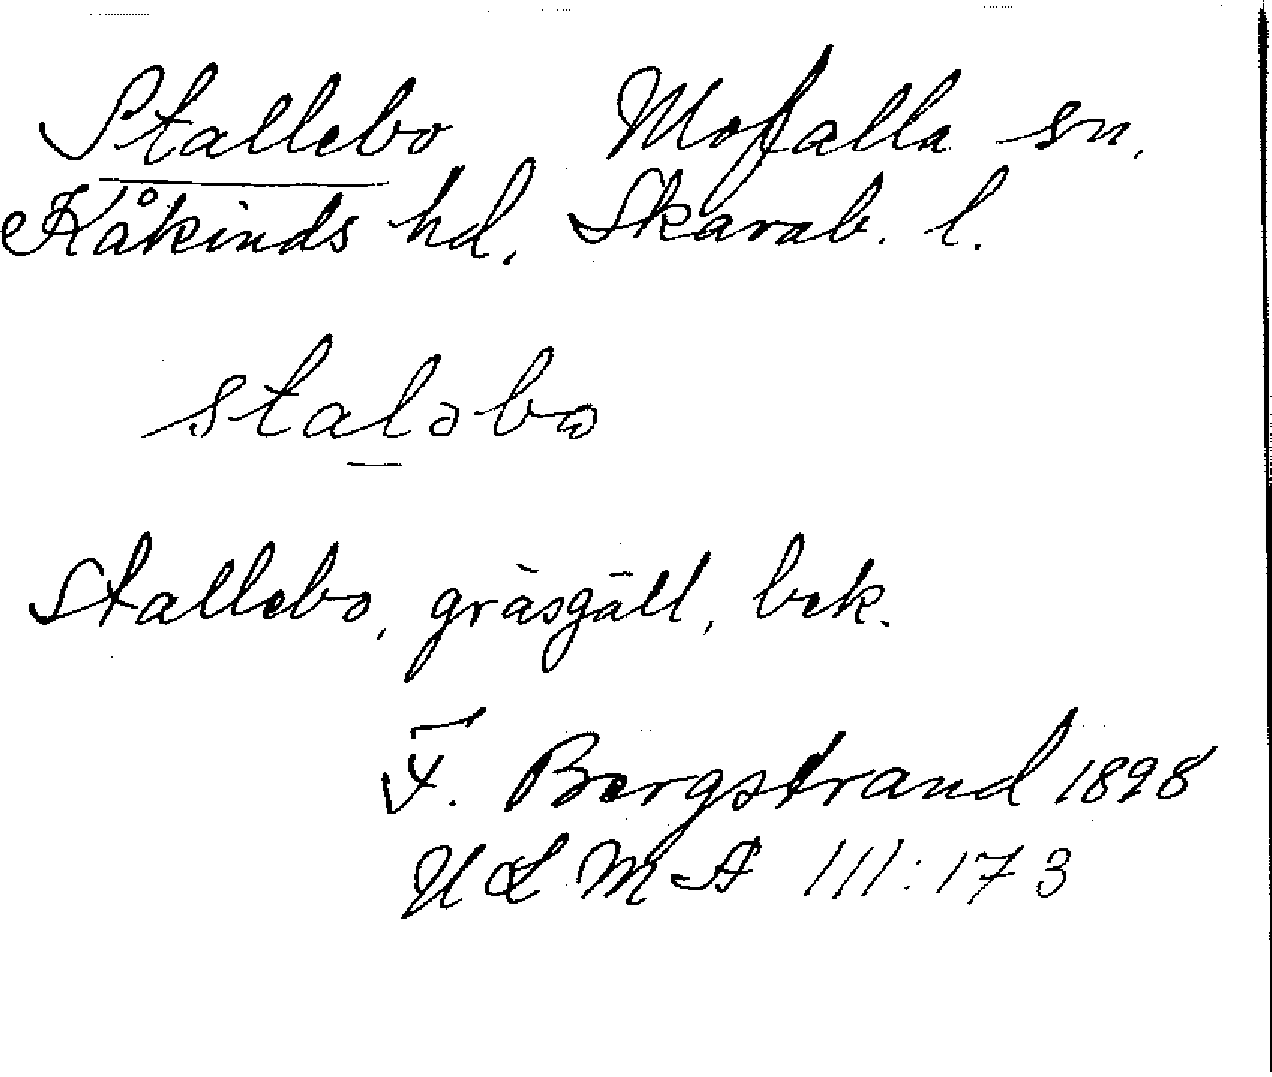 Stallebo Mofalla sn.
Kåkinds hd. Skarab. l.
staləbω
Stallebo, gräsgäll, bek.
F. Bergstrand 1898
ULMA 111:173